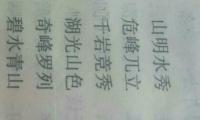 山明水秀
危峰兀立
千岩竞秀
湖光山色
奇峰罗列
碧水青山